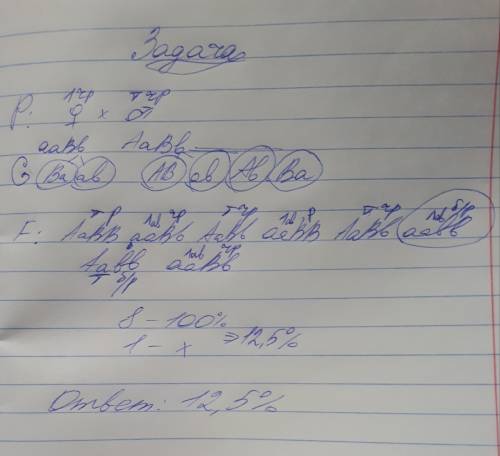 Задача
P: ♀ × ♂
aaBb AaBb
G Ba ab AB ab Ab Ba
F: AaBB aaBb AaBb aaBB AaBb aabb
Aabb aaBb
8 – 100%
1 – x ⇒ 12,5%
Ответ: 12,5%